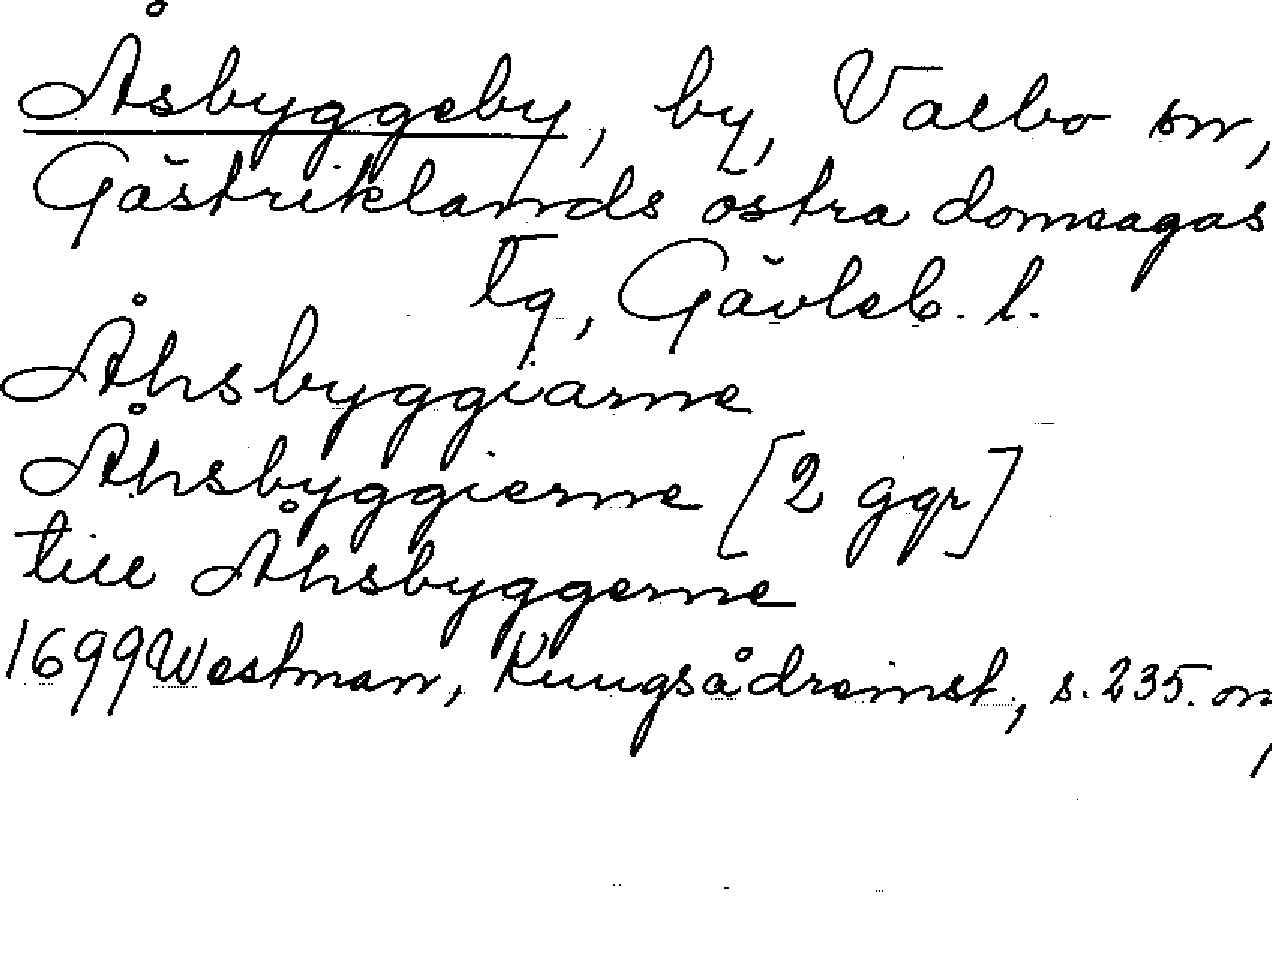 Åsbyggeby, by, Valbo sn,
Gästriklands östra domsagas
tg, Gävleb. l.
Åhsbyggiarne
Åhsbyggierne [2 ggr]
till Åhsbyggerne
1699 Westman, Kungsådreinst, s. 235.